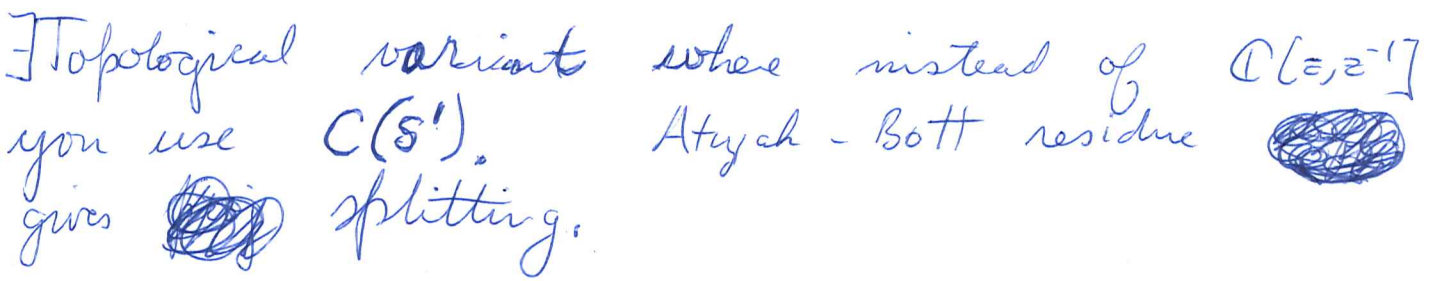 ∃ Topological variant where instead of ℂ[z,z⁻¹]
you use C(S¹). Atiyah-Bott residue
gives splitting.